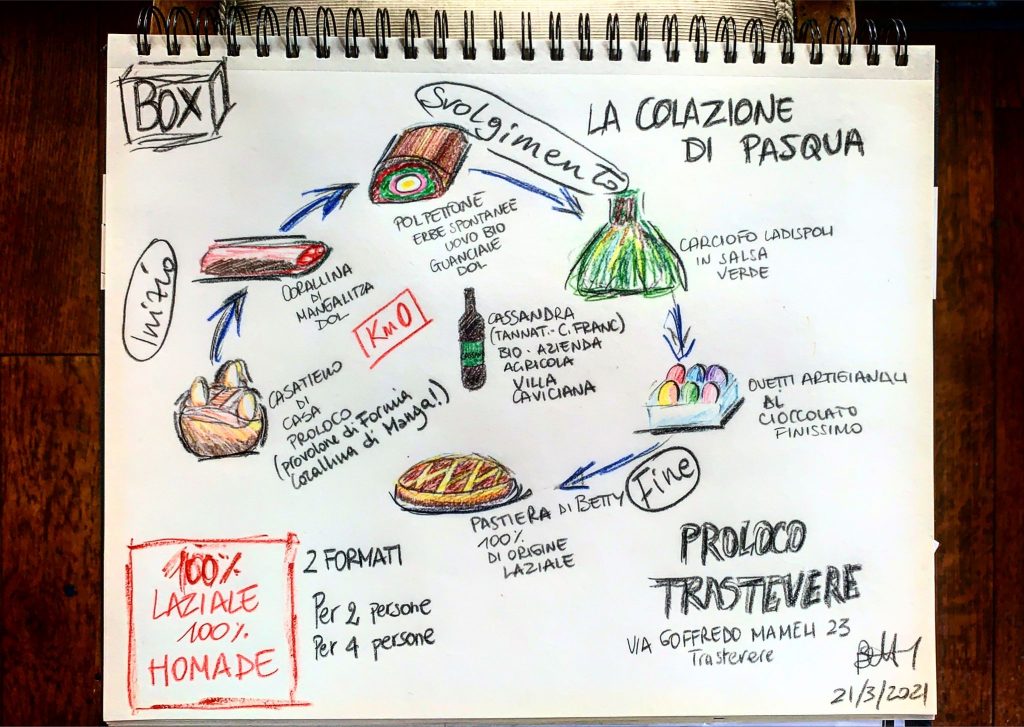 BOX
LA COLAZIONE
DI PASQUA
Svolgimento
POLPETTONE
ERBE SPONTANEE
UOVO BIO
GUANCIALE
DOL
CARCIOFO LADISPOLI
IN SALSA
VERDE
Inizio
CORALLINA
DI
MANGALITZA
DOL
Km0
CASSANDRA
(TANNAT.-C.FRANC)
BIO - AZIENDA
AGRICOLA
VILLA
CAVICIANA
CASATIELLO
DI
CASA
PROLOCO
(provolone di Formia
Corallina di Manga!)
OVETTI ARTIGIANALI
DI
CIOCCOLATO
FINISSIMO
Fine
PASTIERA DI BETTY
100%
DI ORIGINE
LAZIALE
100%
LAZIALE
100%
HOMADE
2 FORMATI
Per 2 persone
Per 4 persone
PROLOCO
TRASTEVERE
VIA GOFFREDO MAMELI 23
Trastevere
21/3/2021